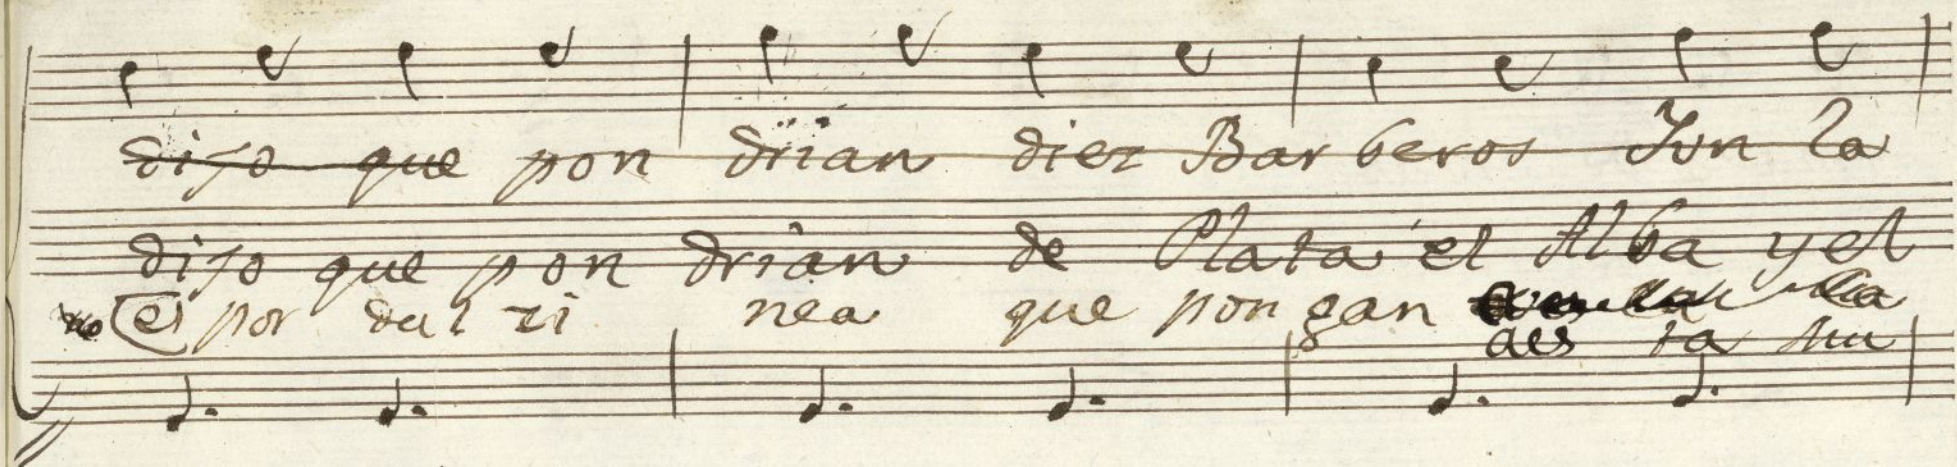 dijo que pon drian diez Barberos Jun la
dijo que pon drian de Plata el Alba y el
no es por dul zi nea que pon gan
a es ta mu